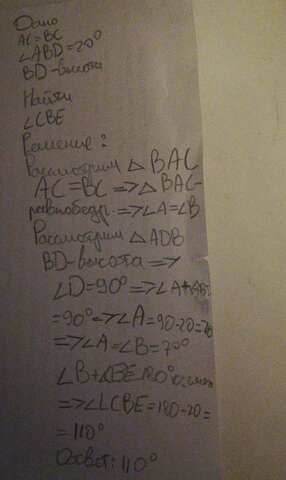 Дано
AC=BC
∠ABD=20°
BD-высота
Найти
∠CBE
Решение:
Рассмотрим △BAC
AC=BC=>△BAC-
равнобедр.=>∠A=∠B
Рассмотрим △ADB
BD-высота=>
∠D=90°=>∠A+∠AB
=90°=>∠A=90-20=70
=>∠A=∠B=70°
∠B+∠BE
=>∠CBE=180-70=
=110°
Ответ:110°